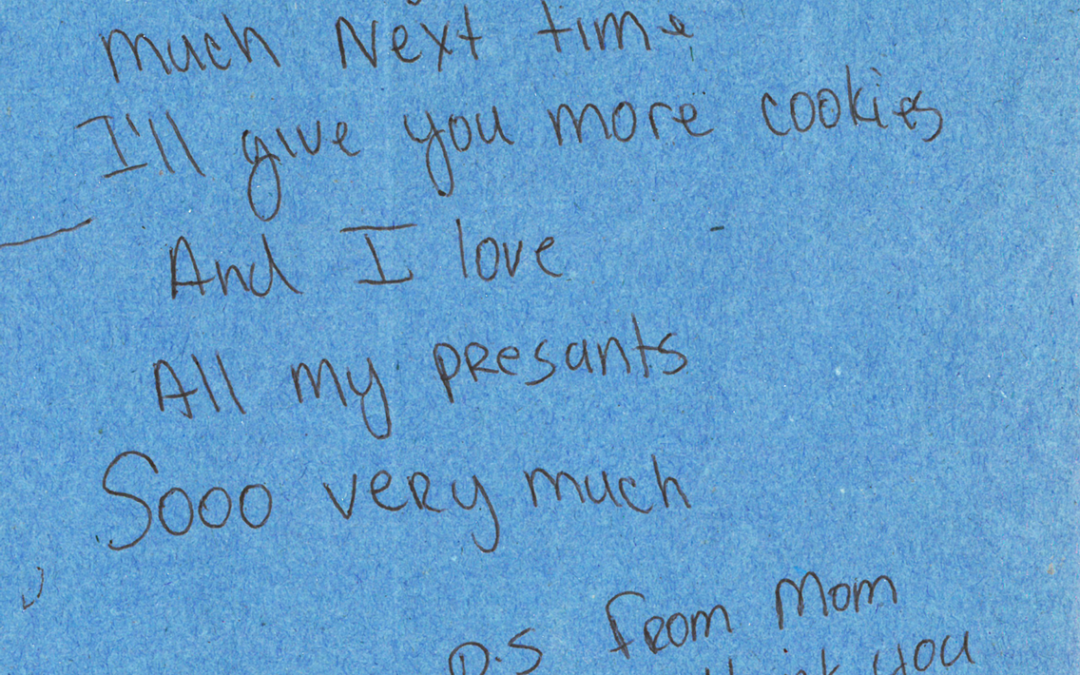 much Next time
I'll give you more cookies
And I love
All my presants
Sooo very much
P.S from Mom
you